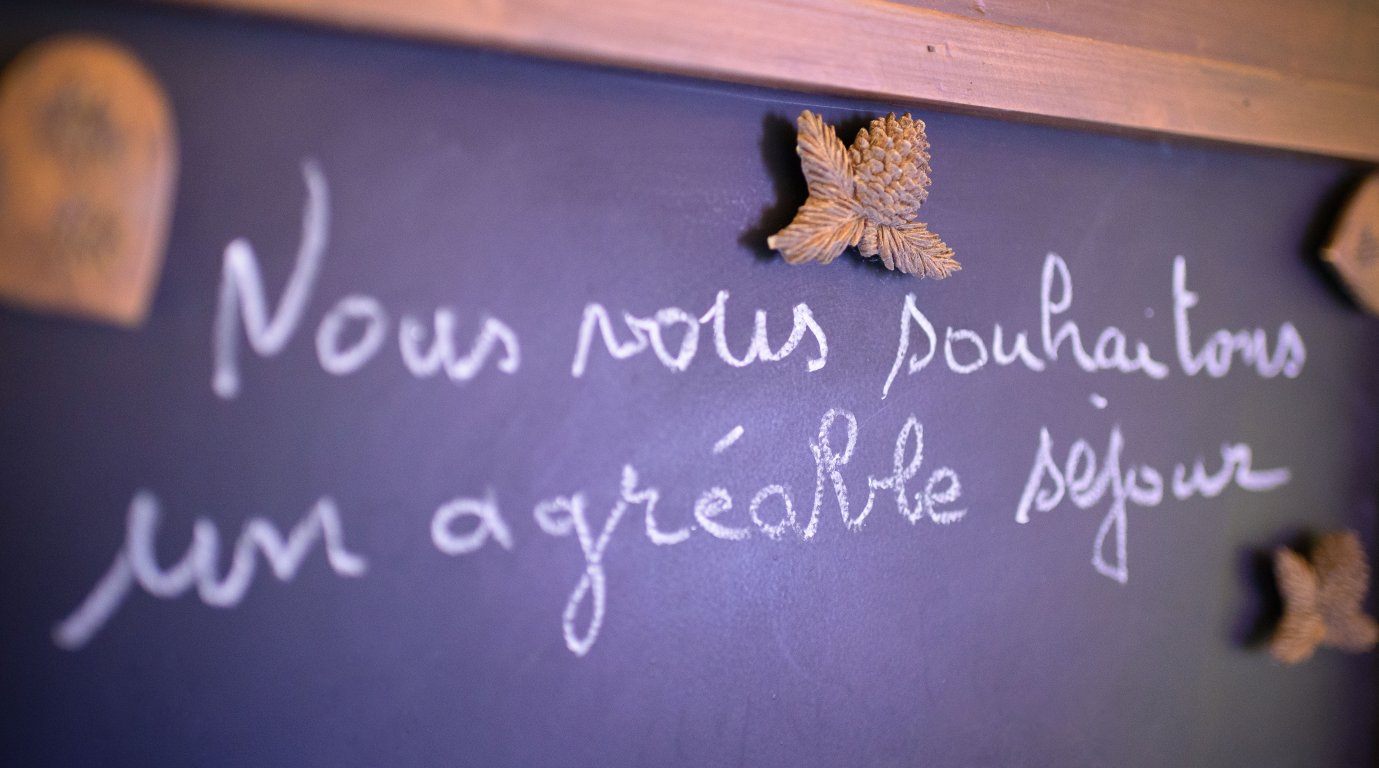 Nous vous souhaitons
un agréable séjour